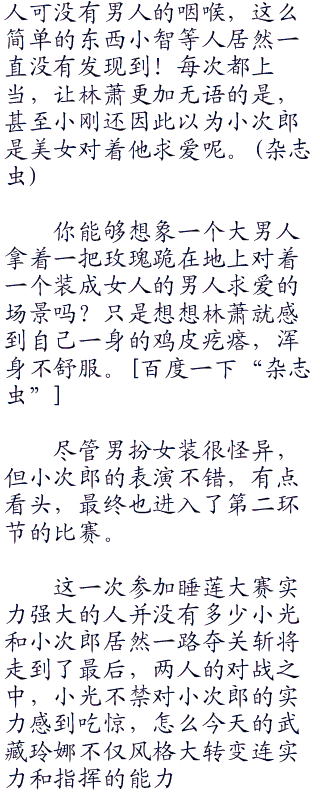 人可没有男人的咽喉，这么
简单的东西小智等人居然一
直没有发现到！每次都上
当，让林萧更加无语的是，
甚至小刚还因此以为小次郎
是美女对着他求爱呢。(杂志
虫)
你能够想象一个大男人
拿着一把玫瑰跪在地上对着
一个装成女人的男人求爱的
场景吗？只是想想林萧就感
到自己一身的鸡皮疙瘩，浑
身不舒服。[百度一下“杂志
虫”]
尽管男扮女装很怪异，
但小次郎的表演不错，有点
看头，最终也进入了第二环
节的比赛。
这一次参加睡莲大赛实
力强大的人并没有多少小光
和小次郎居然一路夺关斩将
走到了最后，两人的对战之
中，小光不禁对小次郎的实
力感到吃惊，怎么今天的武
藏玲娜不仅风格大转变连实
力和指挥的能力